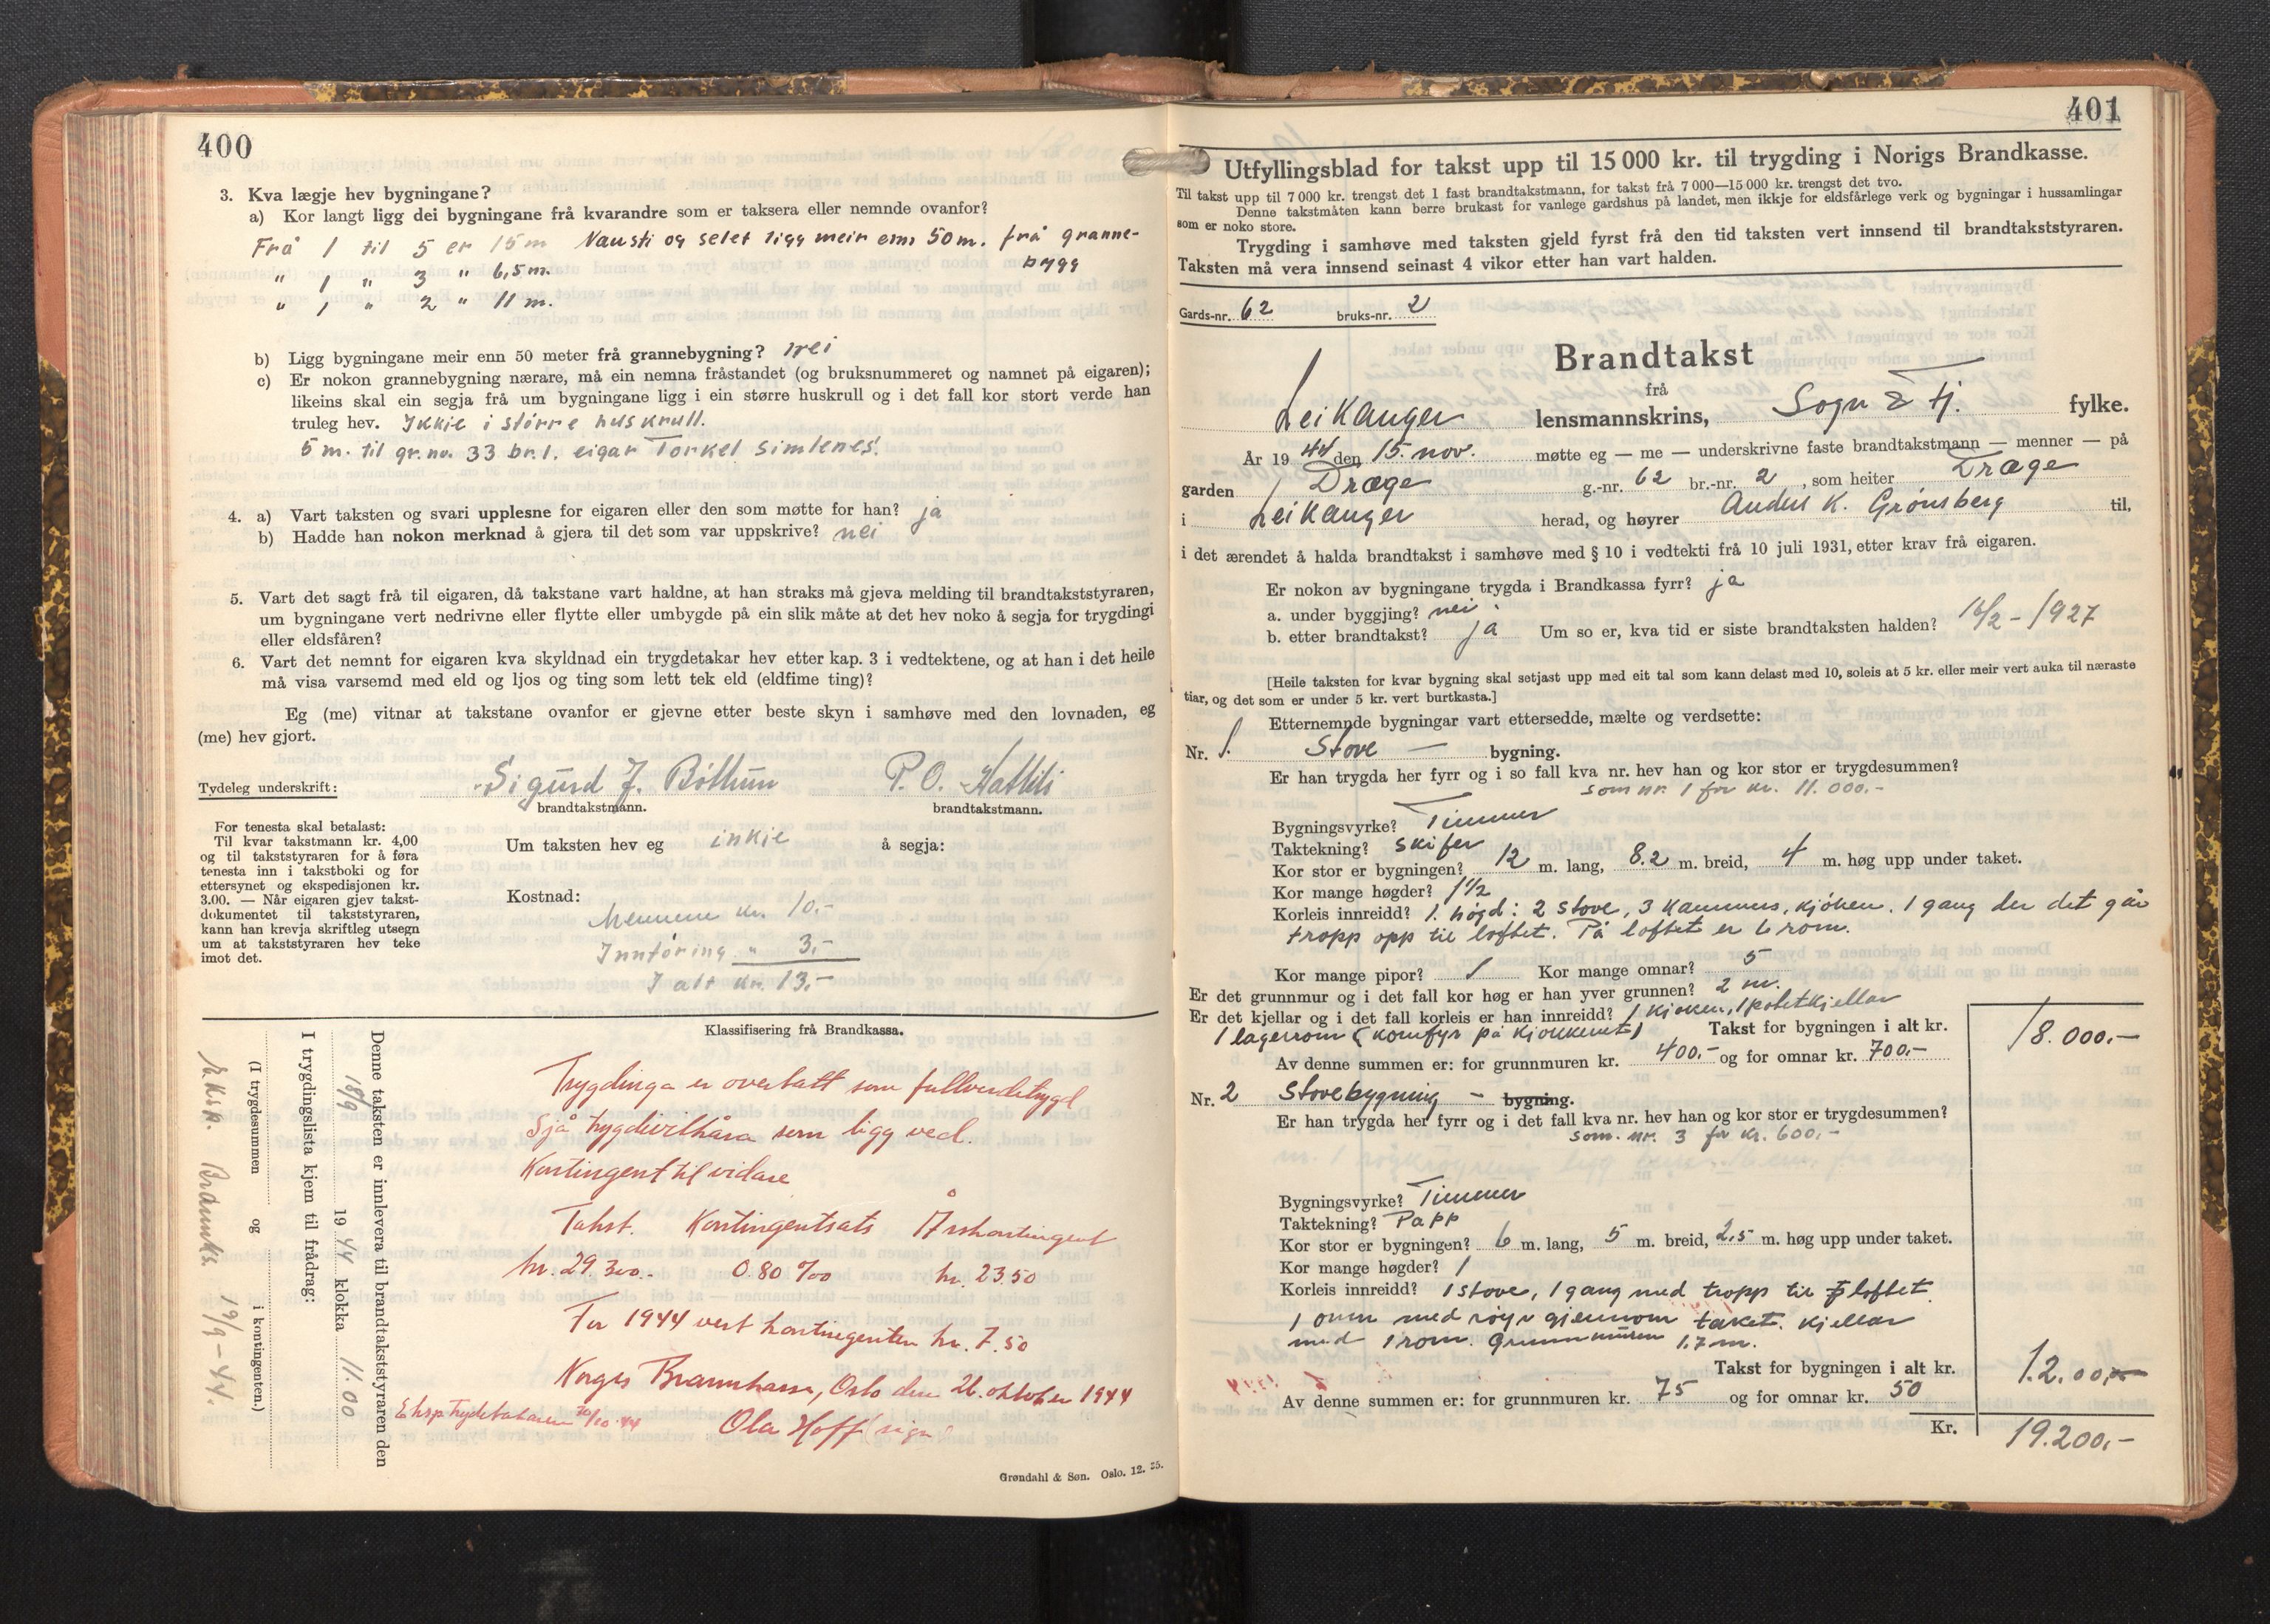 400
3. Kva lægje hev bygningane?
a) Kor langt ligg dei bygningane frå kvarandre som er taksera eller nemnde ovanfor?
Frå 1 til 5 er 15 m Nausti og selet ligg meir enn 50 m. frå granne-
" 1 " 3 " 6,5 m. bygg
" 1 " 2 " 11 m.
b) Ligg bygningane meir enn 50 meter frå grannebygning? nei
c) Er nokon grannebygning nærare, må ein nemna fråstandet (og bruksnummeret og namnet på eigaren);
likeins skal ein segja frå um bygningane ligg i ein større huskrull og i det fall kor stort verde han
truleg hev. Ikkje i større huskrull.
5 m. til gr.no. 33 br. 1. eigar Torkel Simlenes.
4. a) Vart taksten og svari upplesne for eigaren eller den som møtte for han? ja
b) Hadde han nokon merknad å gjera til det som var uppskrive? nei
5. Vart det sagt frå til eigaren, då takstane vart haldne, at han straks må gjeva melding til brandtakststyraren,
um bygningane vert nedrivne eller flytte eller umbygde på ein slik måte at det hev noko å segja for trygdingi
eller eldsfåren?
6. Vart det nemnt for eigaren kva skyldnad ein trygdetakar hev etter kap. 3 i vedtektene, og at han i det heile
må visa varsemd med eld og ljos og ting som lett tek eld (eldfime ting)?
Eg (me) vitnar at takstane ovanfor er gjevne etter beste skyn i samhøve med den lovnaden, eg
(me) hev gjort.
Tydeleg underskrift: Sigurd J. Bøthun P. O.
brandtakstmann. brandtakstmann.
For tenesta skal betalast:
Til kvar takstmann kr. 4,00
og til takststyraren for å føra
tenesta inn i takstboki og for
ettersynet og ekspedisjonen kr.
3.00. — Når eigaren gjev takst-
dokumentet til takststyraren,
kann han krevja skriftleg utsegn
um at takststyraren hev teke
imot det.
Um taksten hev eg inkje å segja:
Kostnad:
Mennene kr. 10.-
Innføring " 3.-
I alt kr. 13.-
Klassifisering frå Brandkassa.
Trygdinga er overtatt som fullverdetrygd
Sjå trygdevilkåra som ligg ved.
Kontingent til vidare
Takst. Kontingentsats Årskontingent
kr. 29.300.- 0.80 ‰ kr. 23.50
For 1944 vert kontingenten kr. 7.50
Norges Brannkasse, Oslo den 26. oktober 1944
Eksp. trygdetakaren 30/10 44
Ola Hoff (sign)
Denne taksten er innlevera til brandtakststyraren den
18/9 1944 klokka 11.00
I trygdingslista kjem til frådrag:
(I trygdesummen og i kontingenten.)
Eksp. Brannks. 19/9-44.
Grøndahl & Søn. Oslo. 12. 35.
401
Utfyllingsblad for takst upp til 15 000 kr. til trygding i Norigs Brandkasse.
Til takst upp til 7 000 kr. trengst det 1 fast brandtakstmann, for takst frå 7 000—15 000 kr. trengst det tvo.
Denne takstmåten kann berre brukast for vanlege gardshus på landet, men ikkje for eldsfårlege verk og bygningar i hussamlingar
som er noko store.
Trygding i samhøve med taksten gjeld fyrst frå den tid taksten vert innsend til brandtakststyraren.
Taksten må vera innsend seinast 4 vikor etter han vart halden.
Gards-nr. 62 bruks-nr. 2
Brandtakst
frå
Leikanger lensmannskrins, Sogn & Fj. fylke.
År 1944 den 15. nov. møtte eg — me — underskrivne faste brandtakstmann — menner — på
garden Dræge g.-nr. 62 br.-nr. 2, som heiter Dræge
i Leikanger herad, og høyrer Anders K. Grønsberg til,
i det ærendet å halda brandtakst i samhøve med § 10 i vedtekti frå 10 juli 1931, etter krav frå eigaren.
Er nokon av bygningane trygda i Brandkassa fyrr? ja
a. under byggjing? nei.
b. etter brandtakst? ja Um so er, kva tid er siste brandtaksten halden? 16/2-1927
[Heile taksten for kvar bygning skal setjast upp med eit tal som kann delast med 10, soleis at 5 kr. eller meir vert auka til næraste
tiar, og det som er under 5 kr. vert burtkasta.]
Etternemnde bygningar vart ettersedde, mælte og verdsette:
Nr. 1. Stove — bygning.
Er han trygda her fyrr og i so fall kva nr. hev han og kor stor er trygdesummen?
som nr. 1 for kr. 11.000.-
Bygningsvyrke? Timmer
Taktekning? Skifer
Kor stor er bygningen? 12 m. lang, 8.2 m. breid, 4 m. høg upp under taket.
Kor mange høgder? 1½
Korleis innreidd? 1. høgd: 2 stove, 3 kammers, kjøken. 1 gang der det går
tropp opp til loftet. På loftet er 6 rom.
Kor mange pipor? 1 Kor mange omnar? 5
Er det grunnmur og i det fall kor høg er han yver grunnen? 2 m.
Er det kjellar og i det fall korleis er han innreidd? 1 kjøken, 1 potetkjellar
1 lagerrom (komfyr på kjøkkenet) Takst for bygningen i alt kr. 18.000.-
Av denne summen er: for grunnmuren kr. 400.- og for omnar kr. 700.-
Nr. 2 Stovebygning - bygning.
Er han trygda her fyrr og i det fall kva nr. hev han og kor stor er trygdesummen?
som. nr. 3 for kr. 600.-
Bygningsvyrke? Timmer
Taktekning? Papp
Kor stor er bygningen? 6 m. lang, 5 m. breid, 2,5 m. høg upp under taket.
Kor mange høgder? 1
Korleis innreidd? 1 stove, 1 gang med tropp til loftet
1 omn med røyr gjennom taket. Kjellar
med 1 rom. Grunnmuren 1.7 m.
Takst for bygningen i alt kr. 1.200.-
Av denne summen er: for grunnmuren kr. 75 og for omnar kr. 50
Kr. 19.200.-